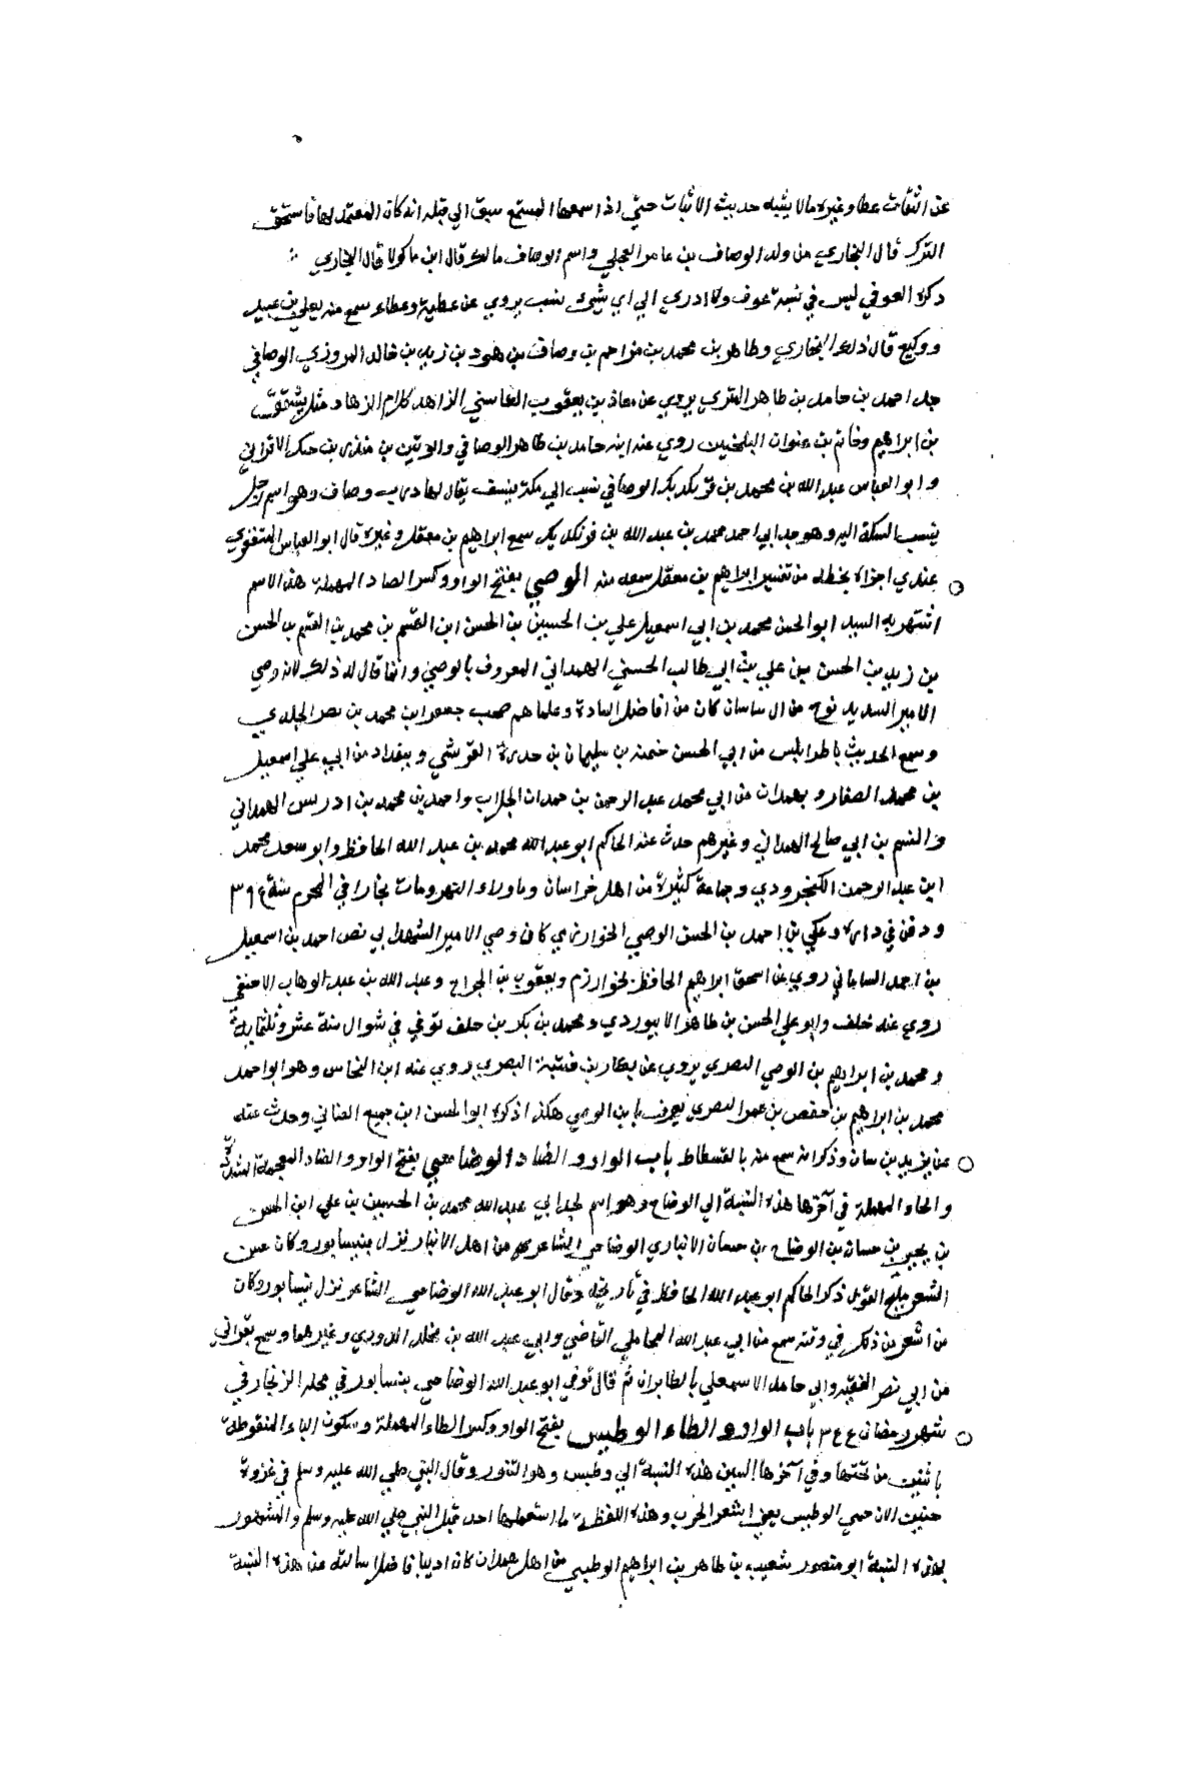 عن الثقات عطا وغيره مالا يشبه حديث الاثبات حتي اذا سمعها المستمع سبق الي قبله انه كان المعتمد لها فاستحق
الترك قال البخاري من ولد الوصاف بن عامر العجلي واسم الوصاف مالك قال ابن ماكولا قال البخاري
دكره العوفي ليس في نسبة عوف ولا ادري الي اي شيء نسب يروي عن عطية وعطاء سمع منه يعلي بن عبيد
ووكيع قال ذلك البخاري وطاهر بن محمد بن مزاحم بن وصاف بن هود بن زيد بن خالد المروزي الوصافي
جد احمد بن حامد بن طاهر المقري يروي عن معاذ بن يعقوب الكاسني الزاهد كلام الزهاد مثل شقيق
بن ابراهيم وحاتم بن عنوان البلخيين روي عنه ابنه حامد بن طاهر الوصافي والوتين بن منذر بن حنك الاقراني
وابو العباس عبد الله بن محمد بن فرنكديك الوصافي نسب الي سكة بنسف يقال لها درب وصاف وهو اسم رجل
ينسب السكة اليه وهو جد ابي احمد محمد بن عبد الله بن فرنكديك سمع ابراهيم بن معقل وغيره قال ابو العباس المستغفري
عندي اجزاء بخطه من تفسير ابراهيم بن معقل سمعه منه الوصي بفتح الواو وكسر الصاد المهملة هذا الاسم
اشتهر به السيد ابو الحسن محمد بن ابي اسمعيل علي بن الحسين بن الحسن ابن القسم بن محمد بن القسم بن الحسن
بن زيد بن الحسن بن علي بن ابي طالب الحسني الهمداني المعروف بالوصي وانما قال له ذلك لانه وصي
الامير السديد نوح من ال ساسان كان من افاضل السادة وعلماهم صحب جعفر ابن محمد بن نصر الخلدي
وسمع الحديث باطرابلس من ابي الحسن خثمنه بن سليمان بن حدرة القرشي وببغداد من ابي علي اسمعيل
بن محمد الصفار وبهمدان من ابي محمد عبد الرحمن بن حمدان الجلاب واحمد بن محمد بن ادريس الهمداني
والقسم بن ابي صالح الهمداني وغيرهم حدث عنه الحاكم ابو عبد الله محمد بن عبد الله الحافظ وابو سعد محمد
ابن عبد الرحمن الكنجرودي وجماعة كثيرة من اهل خراسان وماوراء النهر ومات بخارا في المحرم سنة ٣٩٤
ودفن في داره وعلي بن احمد بن الحسن الوصي الخوارزمي كان وصي الامير الشهيد ابي نصر احمد بن اسمعيل
بن احمد الساماني روي عن اسحق ابراهيم الحافظ بخوارزم ويعقوب بن الجراح وعبد الله بن عبد الوهاب الاحنفي
روي عنه خلف وابو علي الحسن بن طاهر الابيوردي ومحمد بن بكر بن خلف توفي في شوال سنة عشر وثلثماية
ومحمد بن ابراهيم بن الوصي البصري يروي عن بكار بن قتيبة البصري روي عنه ابن النحاس وهو ابو احمد
محمد بن ابراهيم بن حفص بن عمر البصري يعرف بابن الوصي هكذا ذكره ابو الحسن ابن جميع الغساني وحدث عنه
عن يزيد بن سنان وذكر انه سمع منه بالفسطاط باب الواو والضاد الوضاحي بفتح الواو والضاد المعجمة المشددة
والحاء المهملة في آخرها هذه النسبة الي الوضاح وهو اسم لجد ابي عبد الله محمد بن الحسين بن علي ابن الحسن
بن يحيي بن حسان بن الوضاح بن حسان الانباري الوضاحي الشاعر من اهل الانبار نزل بنيسابور وكان حسن
الشعر مليح القول ذكر الحاكم ابو عبد الله الحافظ في تاريخه وقال ابو عبد الله الوضاحي الشاعر نزل نيسابور وكان
من اشعر من ذكر في وقته سمع من ابي عبد الله المحاملي القاضي وابي عبد الله بن مخلد الدوري وغيرهما وسمع بقراتي
من ابي نصر الفقيه وابي حامد الاسمعلي بالطابران ثم قال توفي ابو عبد الله الوضاحي بنيسابور في محله الزنجار في
شهر رمضان ٣٤٤ باب الواو والطاء الوطيس بفتح الواو وكسر الطاء المهملة وسكون الياء المنقوطة
باثنين من تحتها وفي آخرها السين هذه النسبة الي وطيس وهو التنور وقال النبي صلي الله عليه وسلم في غزوة
حنين الان حمي الوطيس يعني اشعر الحرب وهذه اللفظة ما استعملها احد قبل النبي صلي الله عليه وسلم والمشهور
بهذه النسبة ابو منصور شعيب بن طاهر بن ابراهيم الوطيسي من اهل همدان كان اديبا فاضلا سالته عن هذه النسبة